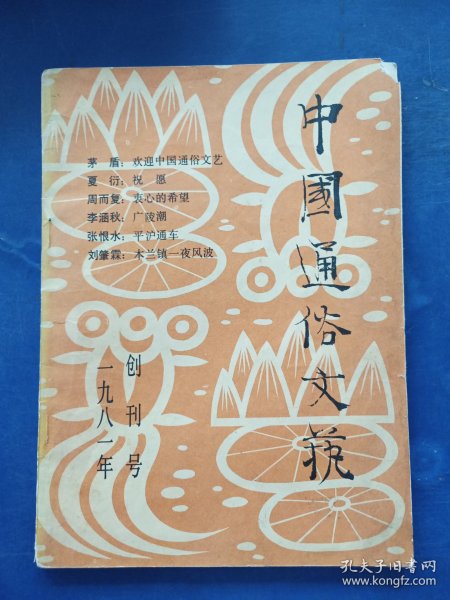 中國通俗文藝
茅 盾：欢迎中国通俗文艺
夏 衍：祝 愿
周而复：衷心的希望
李涵秋：广陵潮
张恨水：平沪通车
刘肇霖：木兰镇一夜风波
创刊号
一九八一年
孔夫子旧书网
www.kongfz.com